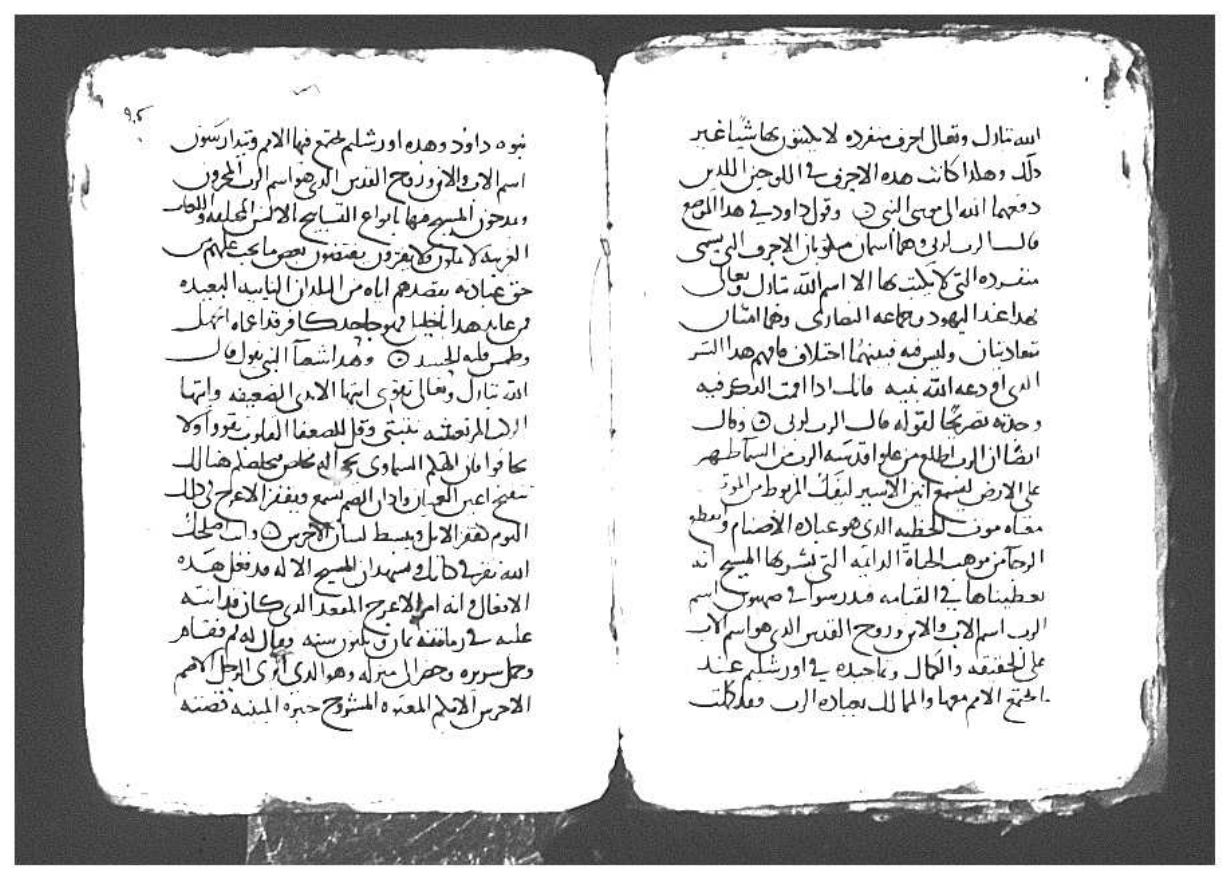 الله تبارك وتعالى احرف منفرده لا يكتبون بها شيا غير
ذلك وهكذا كانت هده الاحرف في اللوحين اللدين
دفعهما الله الى موسى النبي وقول داود في هدا الموضع
قال الرب لربي وهما اسمان مكتوبان الاحرف التي يسمى
منفرده التي لا يكتب بها الا اسم الله تبارك وتعالى
بهدا عند اليهود وجماعه النصارى وهما امتان
متعاديتان وليس فيه بينهما اختلاف فافهم هدا السر
الدى اودعه الله نبيه فانك ادا اقمت الدكر فيه
وجدته تصريحا لقوله قال الرب لربي وقال
ايضا ان الرب اطلع من علو قدسه الرب من السما ظهر
على الارض ليسمع انين الاسير ليفك المربوط من الموت
معناه موت الخطيه الدى هو عباده الاصنام
الرجا من موهب الحياة الدايمه التي بشر بها المسيح انه
يعطيناها في القيامه فيدرسوا في صهيون اسم
الرب اسم الاب والابن وروح القدس الدى هو اسم الاب
على الحقيقه والكمال وتماجيده في اورشليم عند
اجتمع الامم معها والممالك بعباده الرب وقد كملت
٩٥
نبوه داود وهده اورشليم يجتمع فيها الامم ويتدارسون
اسم الاب والابن وروح القدس الدى هو اسم الرب
ويمدحون المسيح فيها بانواع التسابيح الالسن المختلفه واللغات
الغريبه لا يملون ولا يفترون يقتضون بعض ما يجب عليهم من
حق عبادته بقصدهم اياه من البلدان الناييه البعيده
فمن عاند هدا فهو جاحد كافر قد اعماه الجهل
وطمس قلبه الحسد وهدا اشعيا النبي يقول قال
الله تبارك وتعالى تقوى ايتها الايدى الضعيفه وايتها
الركب المرتعشه تثبتي وقل للضعفا القلوب تقووا ولا
تخافوا فان الهكم السماوى يجي مخلصكم هنالك
تنفتح اعين العميان وادان الصم تسمع ويقفز الاعرج في دلك
اليوم كقفز الايل وينبسط لسان الاخرس وانت اصلحك
الله تقر في كتابك وتشهد ان المسيح الاله قد فعل هده
الافعال في انه امر الاعرج المقعد الدى كان قد اتت
عليه في زمانته تمان وتلتون سنه وقال له قم فقام
وحمل سريره وحضر الى منزله وهو الدى ابرى الرجل الاصم
الاخرس المعتوه المشروح خبره المبينه قصته